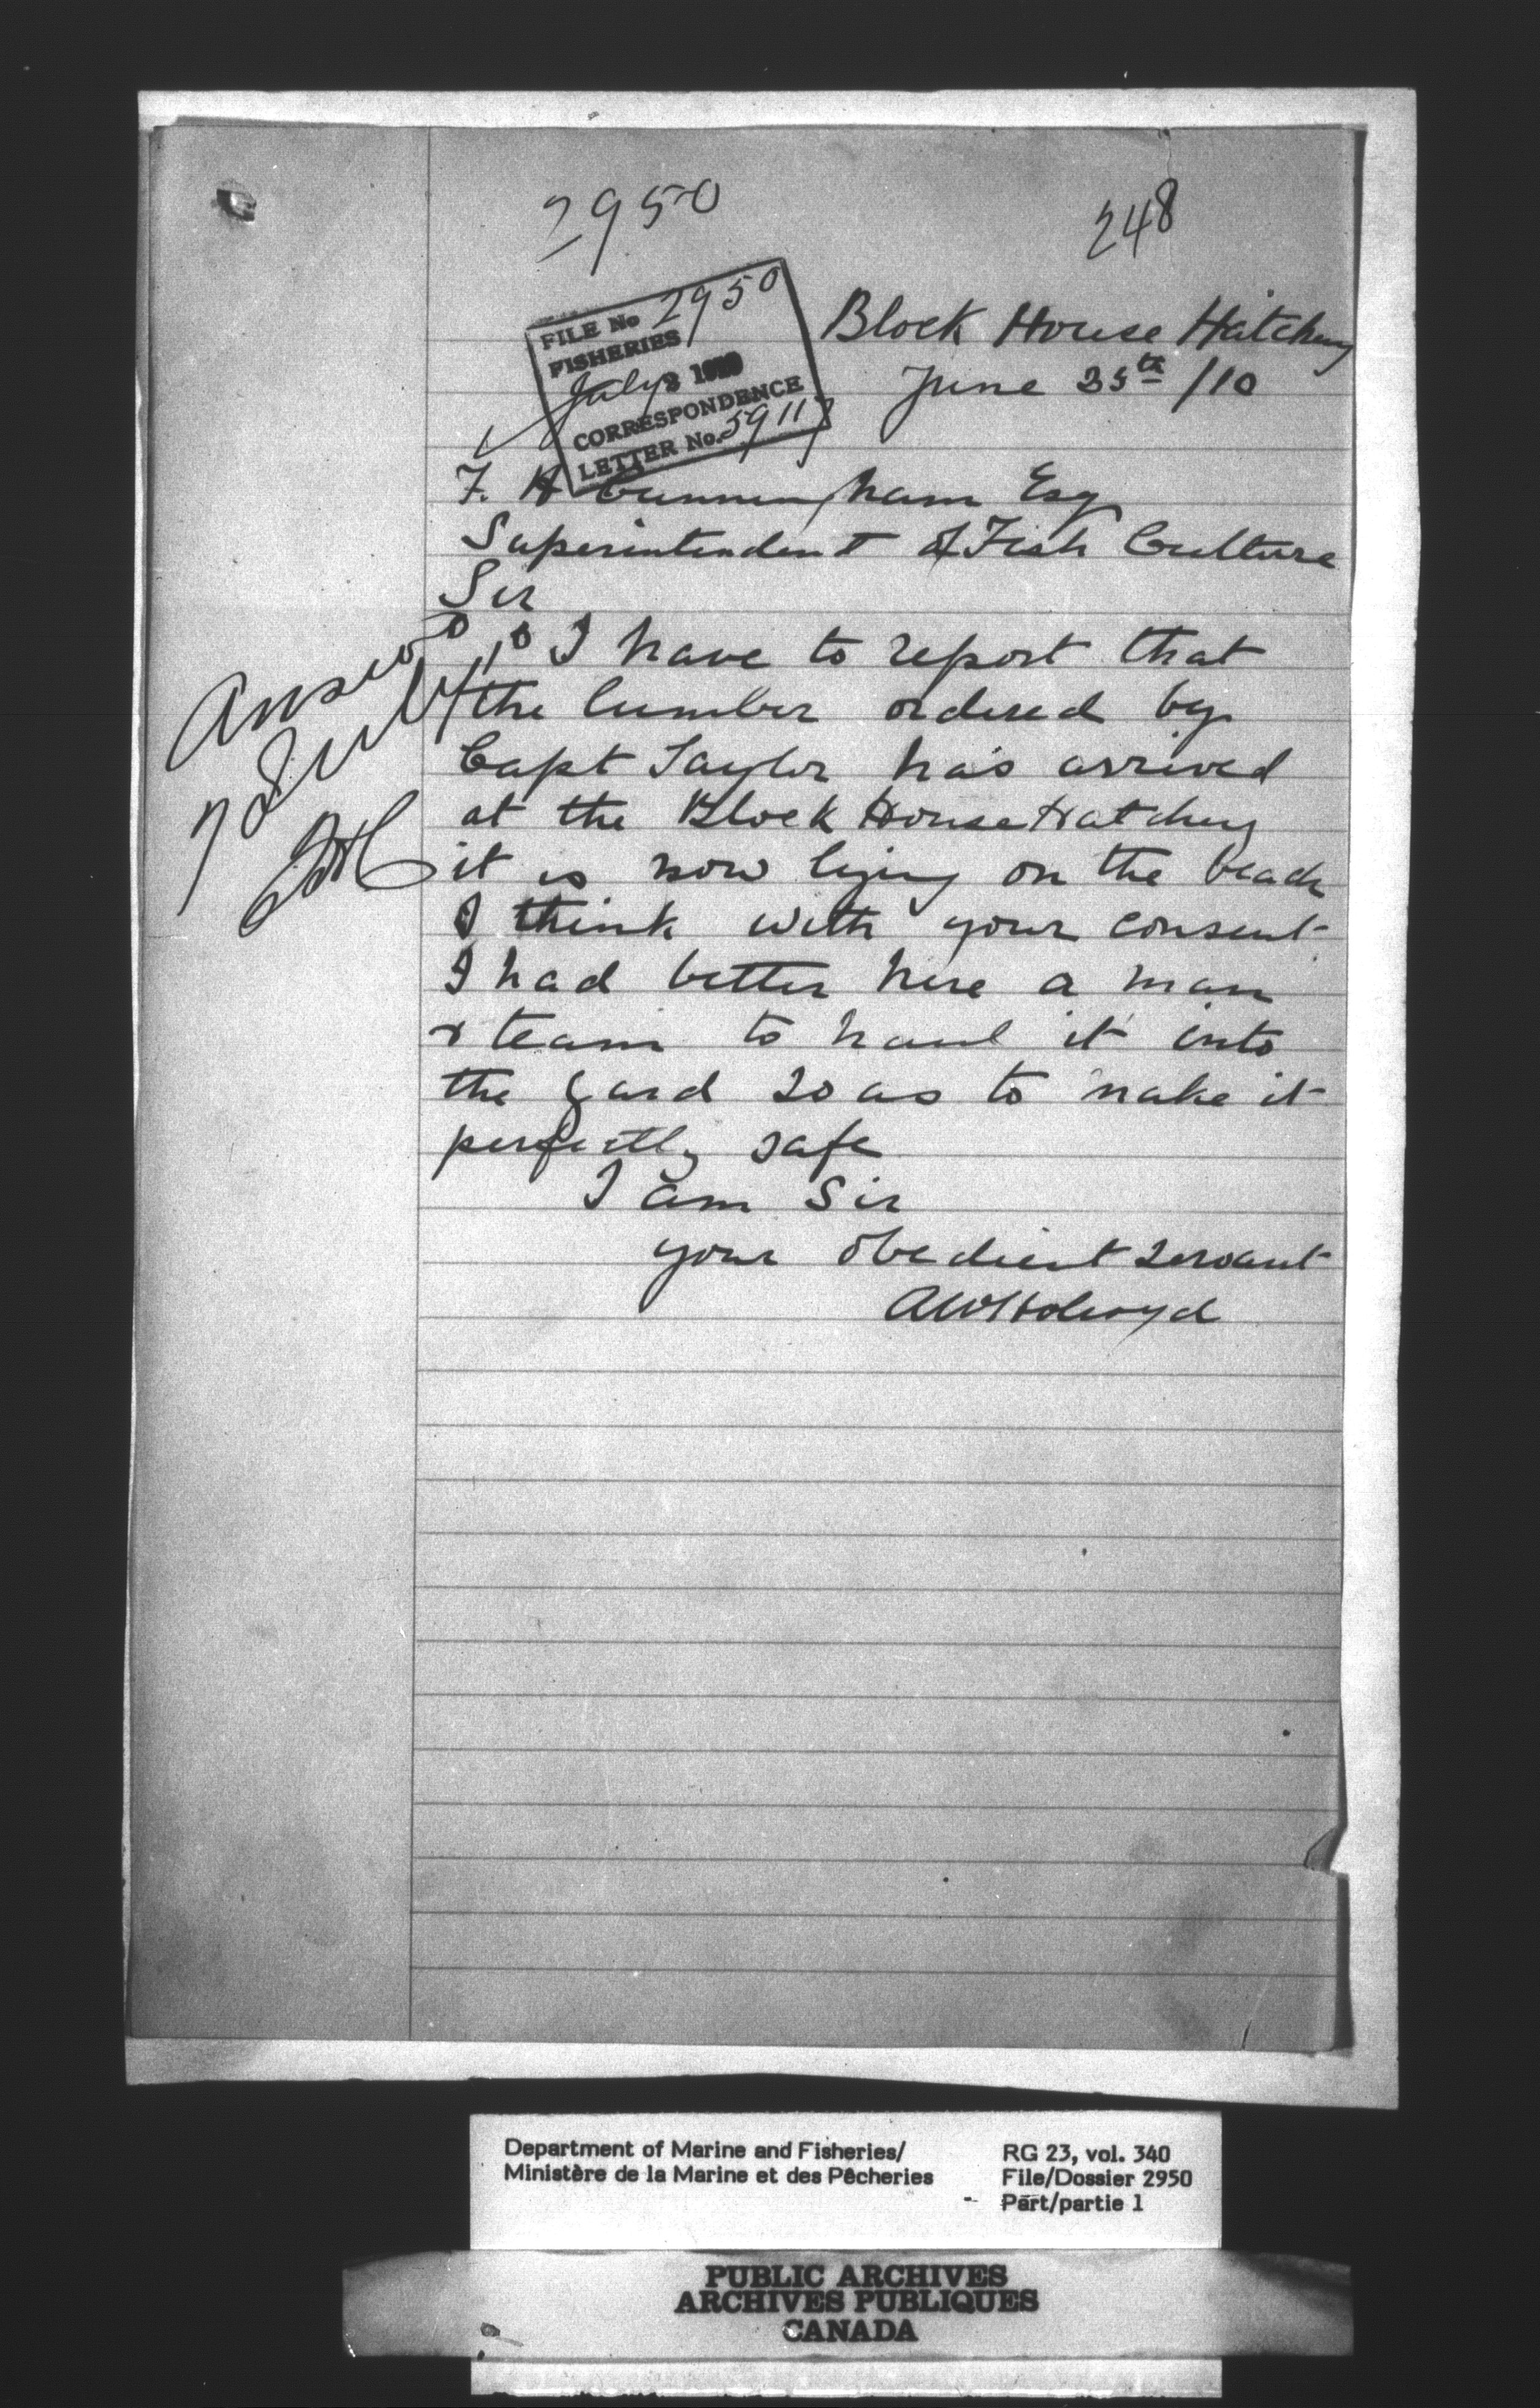 2950
248
FILE No 2950
FISHERIES
July 2 1910
CORRESPONDENCE
LETTER No. 59117
Block House Hatchery
June 25th /10
F. H Cunningham Esq
Superintendent of Fish Culture
Sir
I have to report that
the lumber ordered by
Capt Taylor has arrived
at the Block House Hatchery
it is now lying on the beach
I think with your consent
I had better hire a man
& team to haul it into
the yard so as to make it
perfectly safe
I am Sir
your obedient servant
A W Holroyd
Answd
7 July/10
FHC
Department of Marine and Fisheries/
Ministère de la Marine et des Pêcheries
RG 23, vol. 340
File/Dossier 2950
Part/partie 1
PUBLIC ARCHIVES
ARCHIVES PUBLIQUES
CANADA